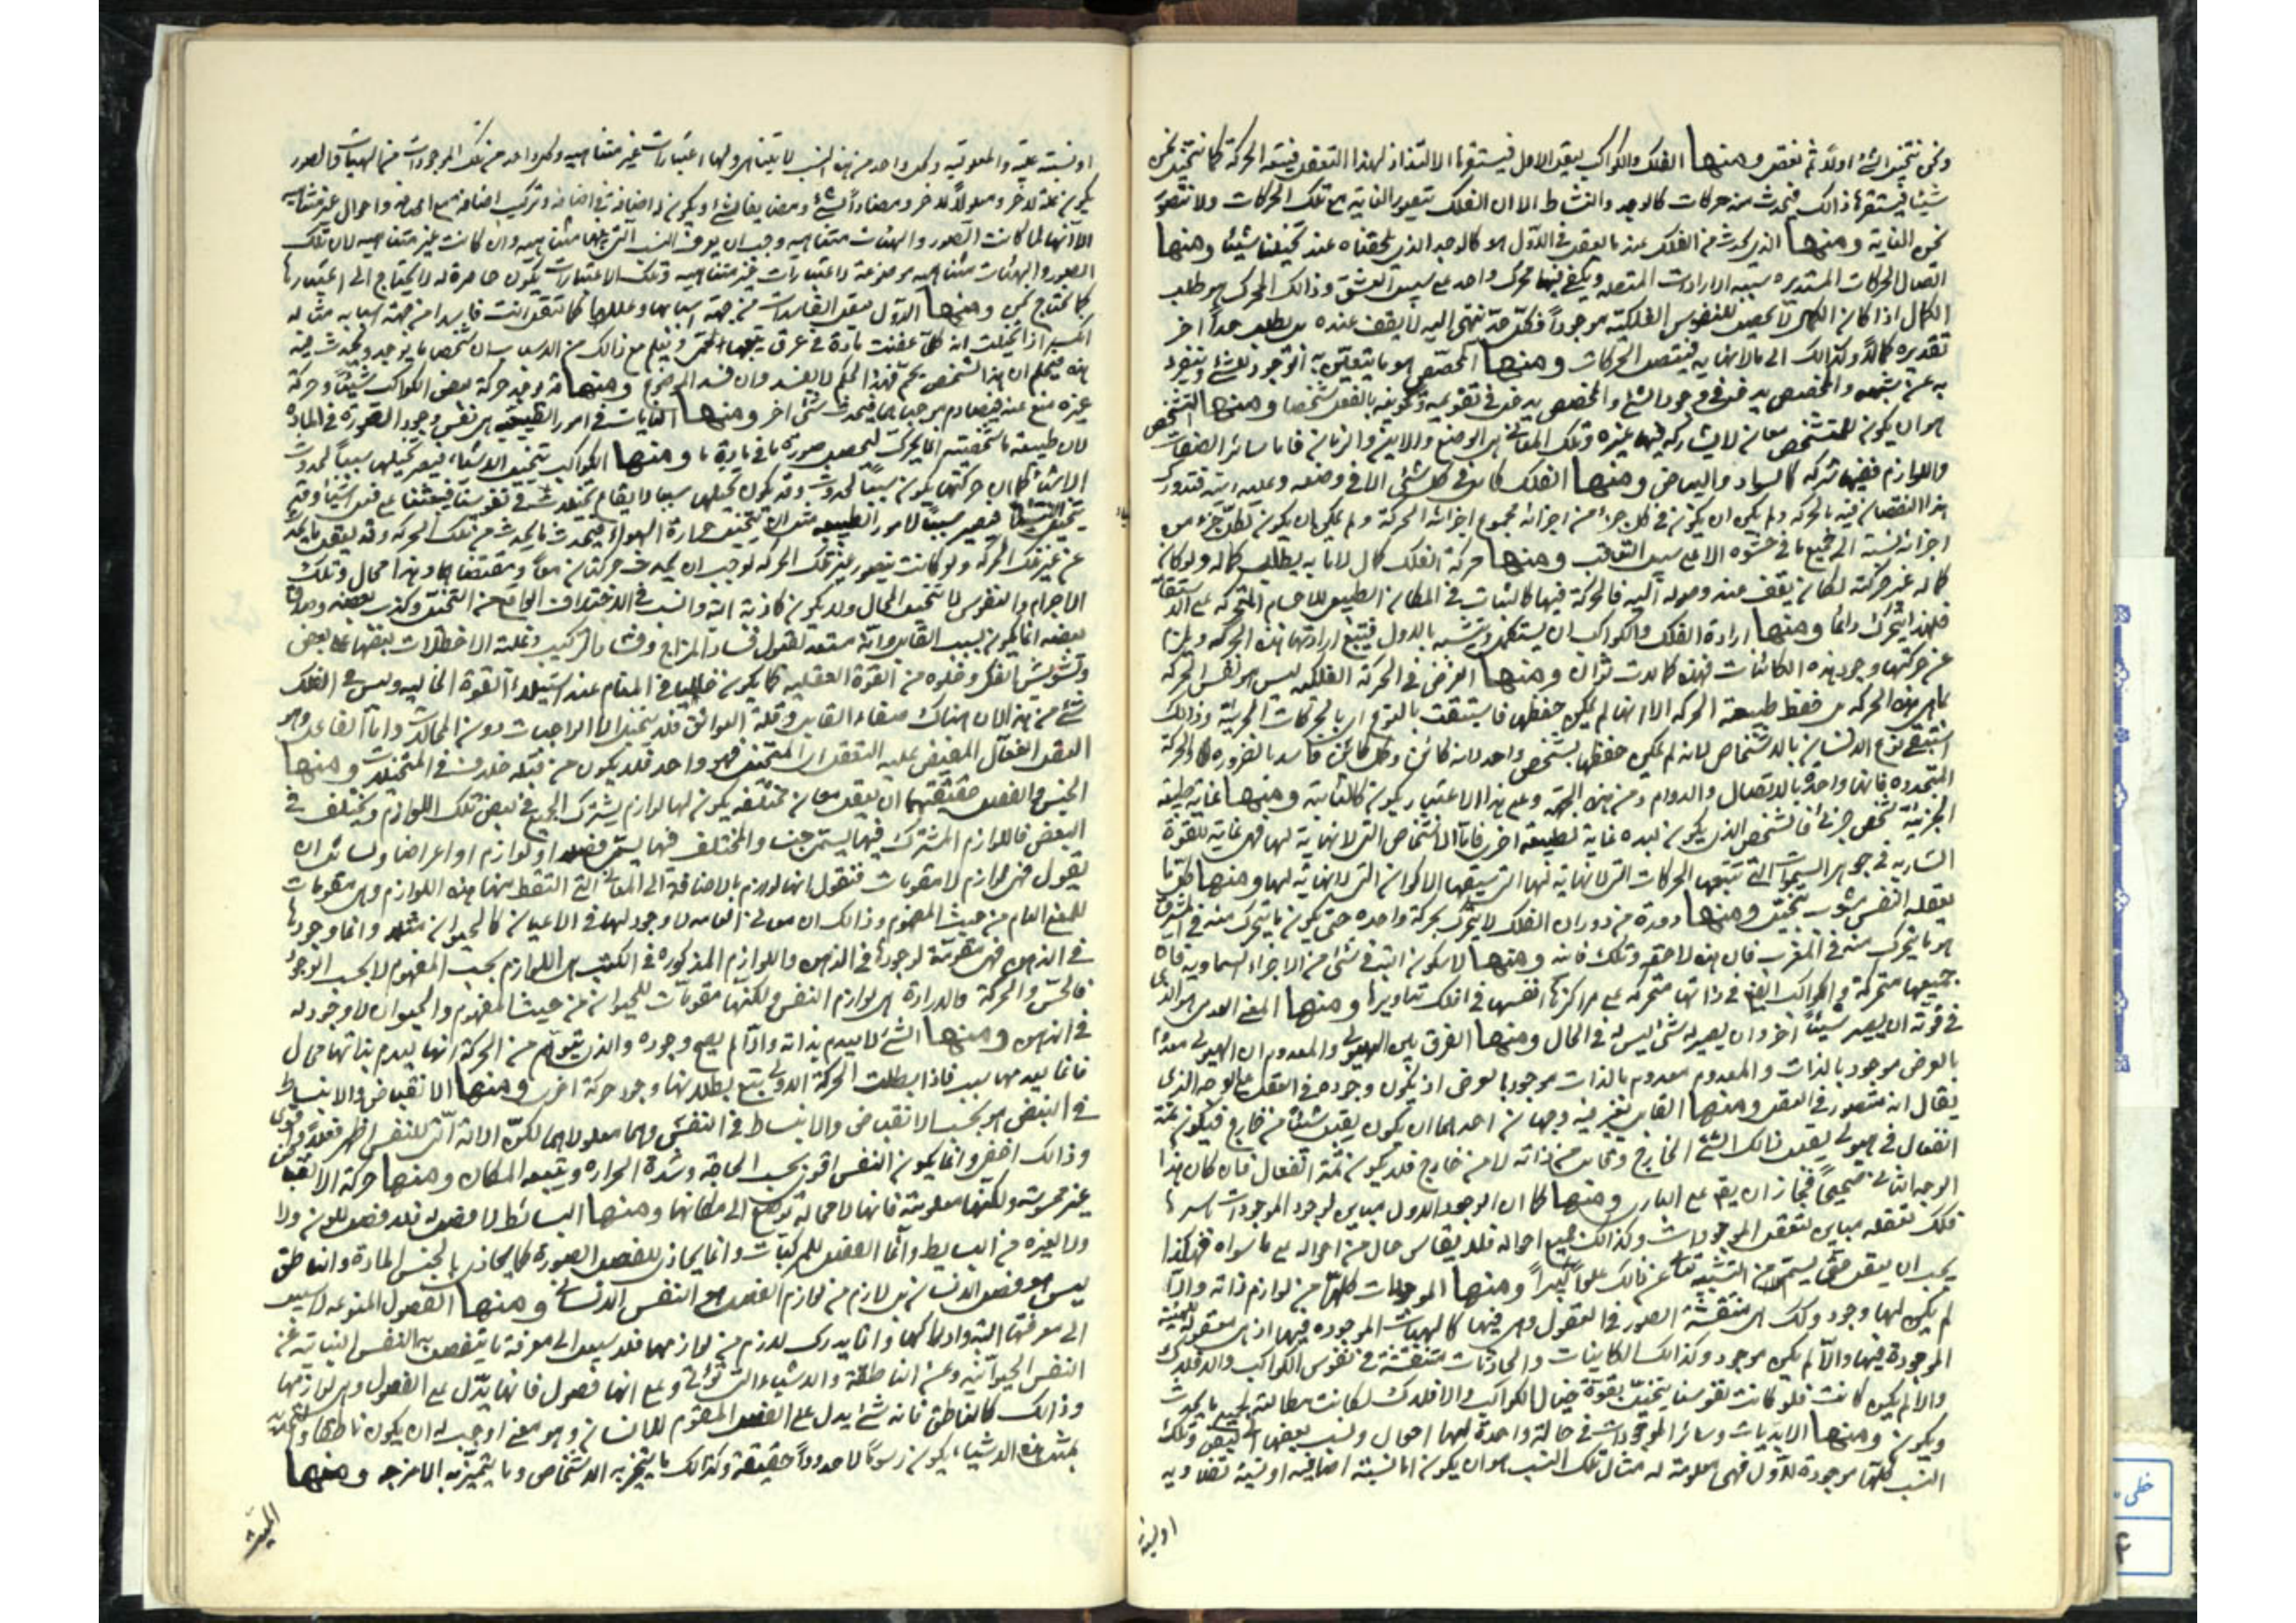 ونحن نتخيل الشئ اولاً ثم نعقل ومنها الفلك والكواكب يعقل الاول فيستفزها الالتذاذ لهذا التعقل فيتبعه الحركة كما نتخيل نحن
شيئا فيستفزنا ذالك فيحدث منه حركات كالوجد والنشاط الا ان الفلك يتصور الغاية مع تلك الحركات ولا نتصور
نحن الغاية ومنها الذى يحدث فى الفلك عند ما يعقل فى الاول هو كالوجد الذى يلحقنا عند تخيلنا شيئا ومنها
اتصال الحركات المستديره سببه الارادات المتصله ويكفى فيها محرك واحد على سبيل العشق وذالك المحرك هو طلب
الكمال اذا كان الكل لا يحصل للنفوس الفلكية موجوداً فكل حد تنتهى اليه لا يقف عنده بل يطلب حداً اخر
تقديره كمالا وكذالك الى مالا نهايه فيتصل الحركات ومنها المخصص هو ما يتعين به الوجود للشئ وينفرد
به عن شبهه والمخصص يدخل فى وجود الشئ والمخصص يدخل فى تقويمه وتكوينه بالفعل شخصا ومنها التشخص
هو ان يكون للمتشخص معان لا يشاركه فيها غيره وتلك المعانى هى الوضع والاين والزمان فاما سائر الصفات
واللوازم ففيها شركه كالسواد والبياض ومنها الفلك كامل فى كل شئ الا فى وضعه وعليه اينه فتدورك
هذا النقصان فيه بالحركه ولم يكن ان يكون فى كل جزء من اجزائه مجموع اجزائه الحركة ولم يمكن ان يكون لكل جزء من
اجزائه نسبة الى جميع ما فى حشوه الا على سبيل التعاقب ومنها حركة الفلك كمال لا ما به يطلب كماله ولو كان
كماله غير حركته لكان يقف عند وصوله اليه فالحركة فيها كالثبات فى المكان الطبيعى للاجسام المتحركه على الاستقامة
فلهذا يتحرك دائما ومنها ارادة الفلك والكواكب ان يستكمل ويتشبه بالاول فيتبع ارادتها هذه الحركه ويلزم
عن حركتها وجود هذه الكائنات فهذه كمالات ثوان ومنها الغرض فى الحركة الفلكيه ليس هو نفس الحركه
بما هى هذه الحركه بل حفظ طبيعة الحركه الا انها لم يمكن حفظها فاستبقت بالنوع اى بالحركات الجزئية وذالك
استبقى نوع الانسان بالاشخاص لانه لم يمكن حفظها بشخص واحد لانه كائن وكل كائن فاسد بالضروره والحركة
المتجدده فانها واحدة بالاتصال والدوام ومن هذه الجهة وعلى هذا الاعتبار يكون كالثابته ومنها غاية طبيعة
الجزئية شخص جزئى فالشخص الذى يكون بعده غاية لطبيعة اخرى فاما الاشخاص التى لا نهاية لها فهى غاية للقوة
السارية فى جوهر السموات التى تتبعها الحركات التى لا نهاية لها التى يتبعها الاكوان التى لا نهاية لها ومنها كل ما
يعقله النفس مشوب بتخيل ومنها دورة من دوران الفلك لا يتحرك بحركة واحده حتى يكون ما يتحرك منه فى المشرق
هو ما يتحرك منه فى المغرب فان هذه لاحقه وتلك فانه ومنها لا سكون البته فى شئ من الاجزاء السماويه فان
جميعها متحركة والكواكب ايضا فى ذاتها متحركه على مراكز انفسها فى افلاك تداويرها ومنها المعنى العدمى هو الذى
فى قوته ان يصير شيئاً اخر وان يصير له شئ ليس له فى الحال ومنها الفرق بين الهيولى والمعدوم ان الهيولى معدوم
بالعرض موجود بالذات والمعدوم معدوم بالذات موجود بالعرض اذ يكون وجوده فى العقل على الوجه الذى
يقال انه متصور فى العقل ومنها القابل يعتبر فيه وجهان احدهما ان يكون يقبل شيئاً من خارج فيكون ثمة
انفعال فى هيولى يقبل ذالك الشئ الخارج وقابل من ذاته لا من خارج فلا يكون ثمة انفعال فان كان هذا
الوجه الثانى صحيحاً فجاز ان يقع على البارى ومنها كما ان الوجود الاول مباين لوجود الموجودات باسرها
فكك تعقله مباين لتعقل الموجودات وكذالك جميع احواله فلا يقاس حال من احواله على ما سواه فهكذا
يجب ان يعقل حتى يسلم من التشبيه تعالى عن ذالك علواً كبيراً ومنها الموجودات كلها من لوازم ذاته والا
لم يكن لها وجود وكك هى منتقشة الصور فى العقول وهى فيها كالهيئات الموجوده فيها اذ هى معقوله للهيئة
الموجودة فيها والا لم يكن موجود وكذالك الكاينات والحادثات منتقشة فى نفوس الكواكب والافلاك
والا لم يكن كانت فلو كانت نفوسنا يتخيل بقوة خيال الكواكب والافلاك لكانت مطالعة لجميع ما يحدث
ويكون ومنها الابديات وسائر الموجودات فى حالة واحدة لها احوال ونسب بعضها الى بعض وتلك
النسب كلها موجودة للاول فهى معلومة له مثال تلك النسب هو ان يكون اما نسبة اضافية او نسبة تضاديه
او نسبة
او نسبة علية والمعلوليه وكل واحد من هذه النسب لا يتناهى ولها اعتبارات غير متناهيه وكل واحد من تلك الموجودات من الهيئات والصور
يكون علة لاخر ومعلولاً لاخر ومضاداً لشئ ومضايفا لشئ ويكون له اضافة فى اضافه وتركيب اضافة مع اضافه واحوال غير متناهيه
الا انها لما كانت الصور والهيئات متناهيه وجب ان يعرف النسب التى بينها متناهيه وان كانت غير متناهيه لان تلك
الصور والهيئات متناهيه موضوعة لاعتبارات غير متناهيه وتلك الاعتبارات يكون حاصرة له لا يحتاج الى اعتبارها
كما يحتاج نحن ومنها الاول يعقل الفاسدات من جهة اسبابها وعللها كما تعقل انت فاسدا من جهة اسبابه مثاله
اذا تخيلت انه كلما عفنت مادة فى عرق يتبعها حمى وتعلم مع ذالك من الاسباب ان شخصا ما يوجد ويحدث فيه
هذه فيحكم ان هذا الشخص يحم فهذا الحكم لا يفسد وان فسد الموضوع ومنها قد يوجد حركة بعض الكواكب شيئاً وحركة
غيره منع عنه فيتصادم موجباهما فيحدث شئ اخر ومنها الغايات فى امور الطبيعية هى نفس وجود الصورة فى الماده
لان طبيعة ما شخصية انما يحرك لتحصل صورة ما فى مادة ما ومنها الكواكب تتخيل الاشياء فيصير تخيلها سببا لحدوث
الاشياء كما ان حركتها يكون سبباً لحدوث وقد يكون تخيلها سببا لايقاع تخيلات فى نفوسنا فيبعثنا على فعل اشياء وقد
يتخيل فيصير سبباً لامور الطبيعيه مثل ان يتخيل حرارة الهواء فيحدث ما يحدث من تلك الحركه وقد يعقل ما يحدث
عن غير تلك الحركه ولو كانت يتصور غير تلك الحركه لوجب ان يحدث حركتان معاً ومقتضاهما وهذا محال وتلك
الاجرام والنفوس لا تتخيل المحال ولا يكون كاذبة البته والسبب فى الاختلاف الواقع من التخيل وكذب بعضه وصدق
بعضه انما يكون بسبب القابل وانه مستعد لقبول فساد المزاج وفساد التركيب وغلبة الاخلاط بعضها على بعض
وتشويش الفكر وخلوه من القوة العقليه كما يكون حالنا فى المنام عند استيلاء القوة الخياليه وليس فى الفلك
شئ من هذا لان هناك صفاء القابل وقلة العوائق فلا يتخيل الا الواجبات دون المحالات واما الفاعل وهو
العقل الفعال المفيض عليه التعقل اى المتخيل فهو واحد فلا يكون من قبله خلاف فى المتخيلات ومنها
الجنس والفصل حقيقتهما ان يعقل معان مختلفه يكون لها لوازم يشترك الجميع فى بعض تلك اللوازم ويختلف فى
البعض فاللوازم المشترك فيها يسمى جنسا والمختلف فيها يسمى فصلا او لوازم او اعراضا ولسائل ان
يقول فهى لوازم لا مقومات فنقول انها لوازم بالاضافة الى المعانى التى التقط منها هذه اللوازم وهى مقومات
للمعنى العام من حيث المفهوم وذالك ان معنى العام لا وجود لها فى الاعيان كالحيوان مثلا وانما وجودها
فى الذهن فهى مقومة لوجودها فى الذهن واللوازم المذكوره فى الكتب هى اللوازم بحسب المفهوم لا بحسب الوجود
فالحس والحركة والارادة هى لوازم النفس ولكنها مقومات للحيوان من حيث المفهوم والحيوان لا وجود له
فى الذهن ومنها الشئ لا يعدم بذاته والا لم يصح وجوده والذى يتوهم من الحركة انها يعدم بذاتها محال
فانما يعدمها سبب فاذا بطلت الحركة الاولى يتبع بطلانها وجود حركة اخرى ومنها الانقباض والانبساط
فى النبض هو بحسب الانقباض والانبساط فى النفس وهما معلولاهما لكن الا انه الى للنفس اظهر فعلا واقوى
وذالك اخفى وانما يكون النفس اقوى بحسب الحاجة وشدة الحراره ويتبعه المكان ومنها حركة الانقباض
غير محسوسة ولكنها معلومة فانها لا محالة ترجع الى مكانها ومنها البسائط لا فصل له فلا فصل للون ولا
ولا لغيره من البسايط وانما الفصل للمركبات وانما يحاذى للفصل الصورة كما يحاذى بالجنس المادة والناطق
ليس هو فصل الانسان بل لازم من لوازم الفصل وهو النفس الانسانى ومنها الفصول المنوعه لا سبيل
الى معرفتها البتة وادراكها وانما يدرك لازم من لوازمها فلا سبيل الى معرفة ما ينفصل به النفس النباتيه عن
النفس الحيوانيه وعن الناطقة والاشياء التى تؤتى على انها فصول فانها تدل على الفصول وهى لوازمها
وذالك كالناطق فانه شئ يدل على الفصل المقوم للانسان وهو معنى اوجب له ان يكون ناطقا والتحديد
بمثل هذه الاشياء يكون رسوماً لا حدوداً حقيقية وكذالك ما يتميز به الاشخاص وما يتميز به الامزجه ومنها
خطى
۴